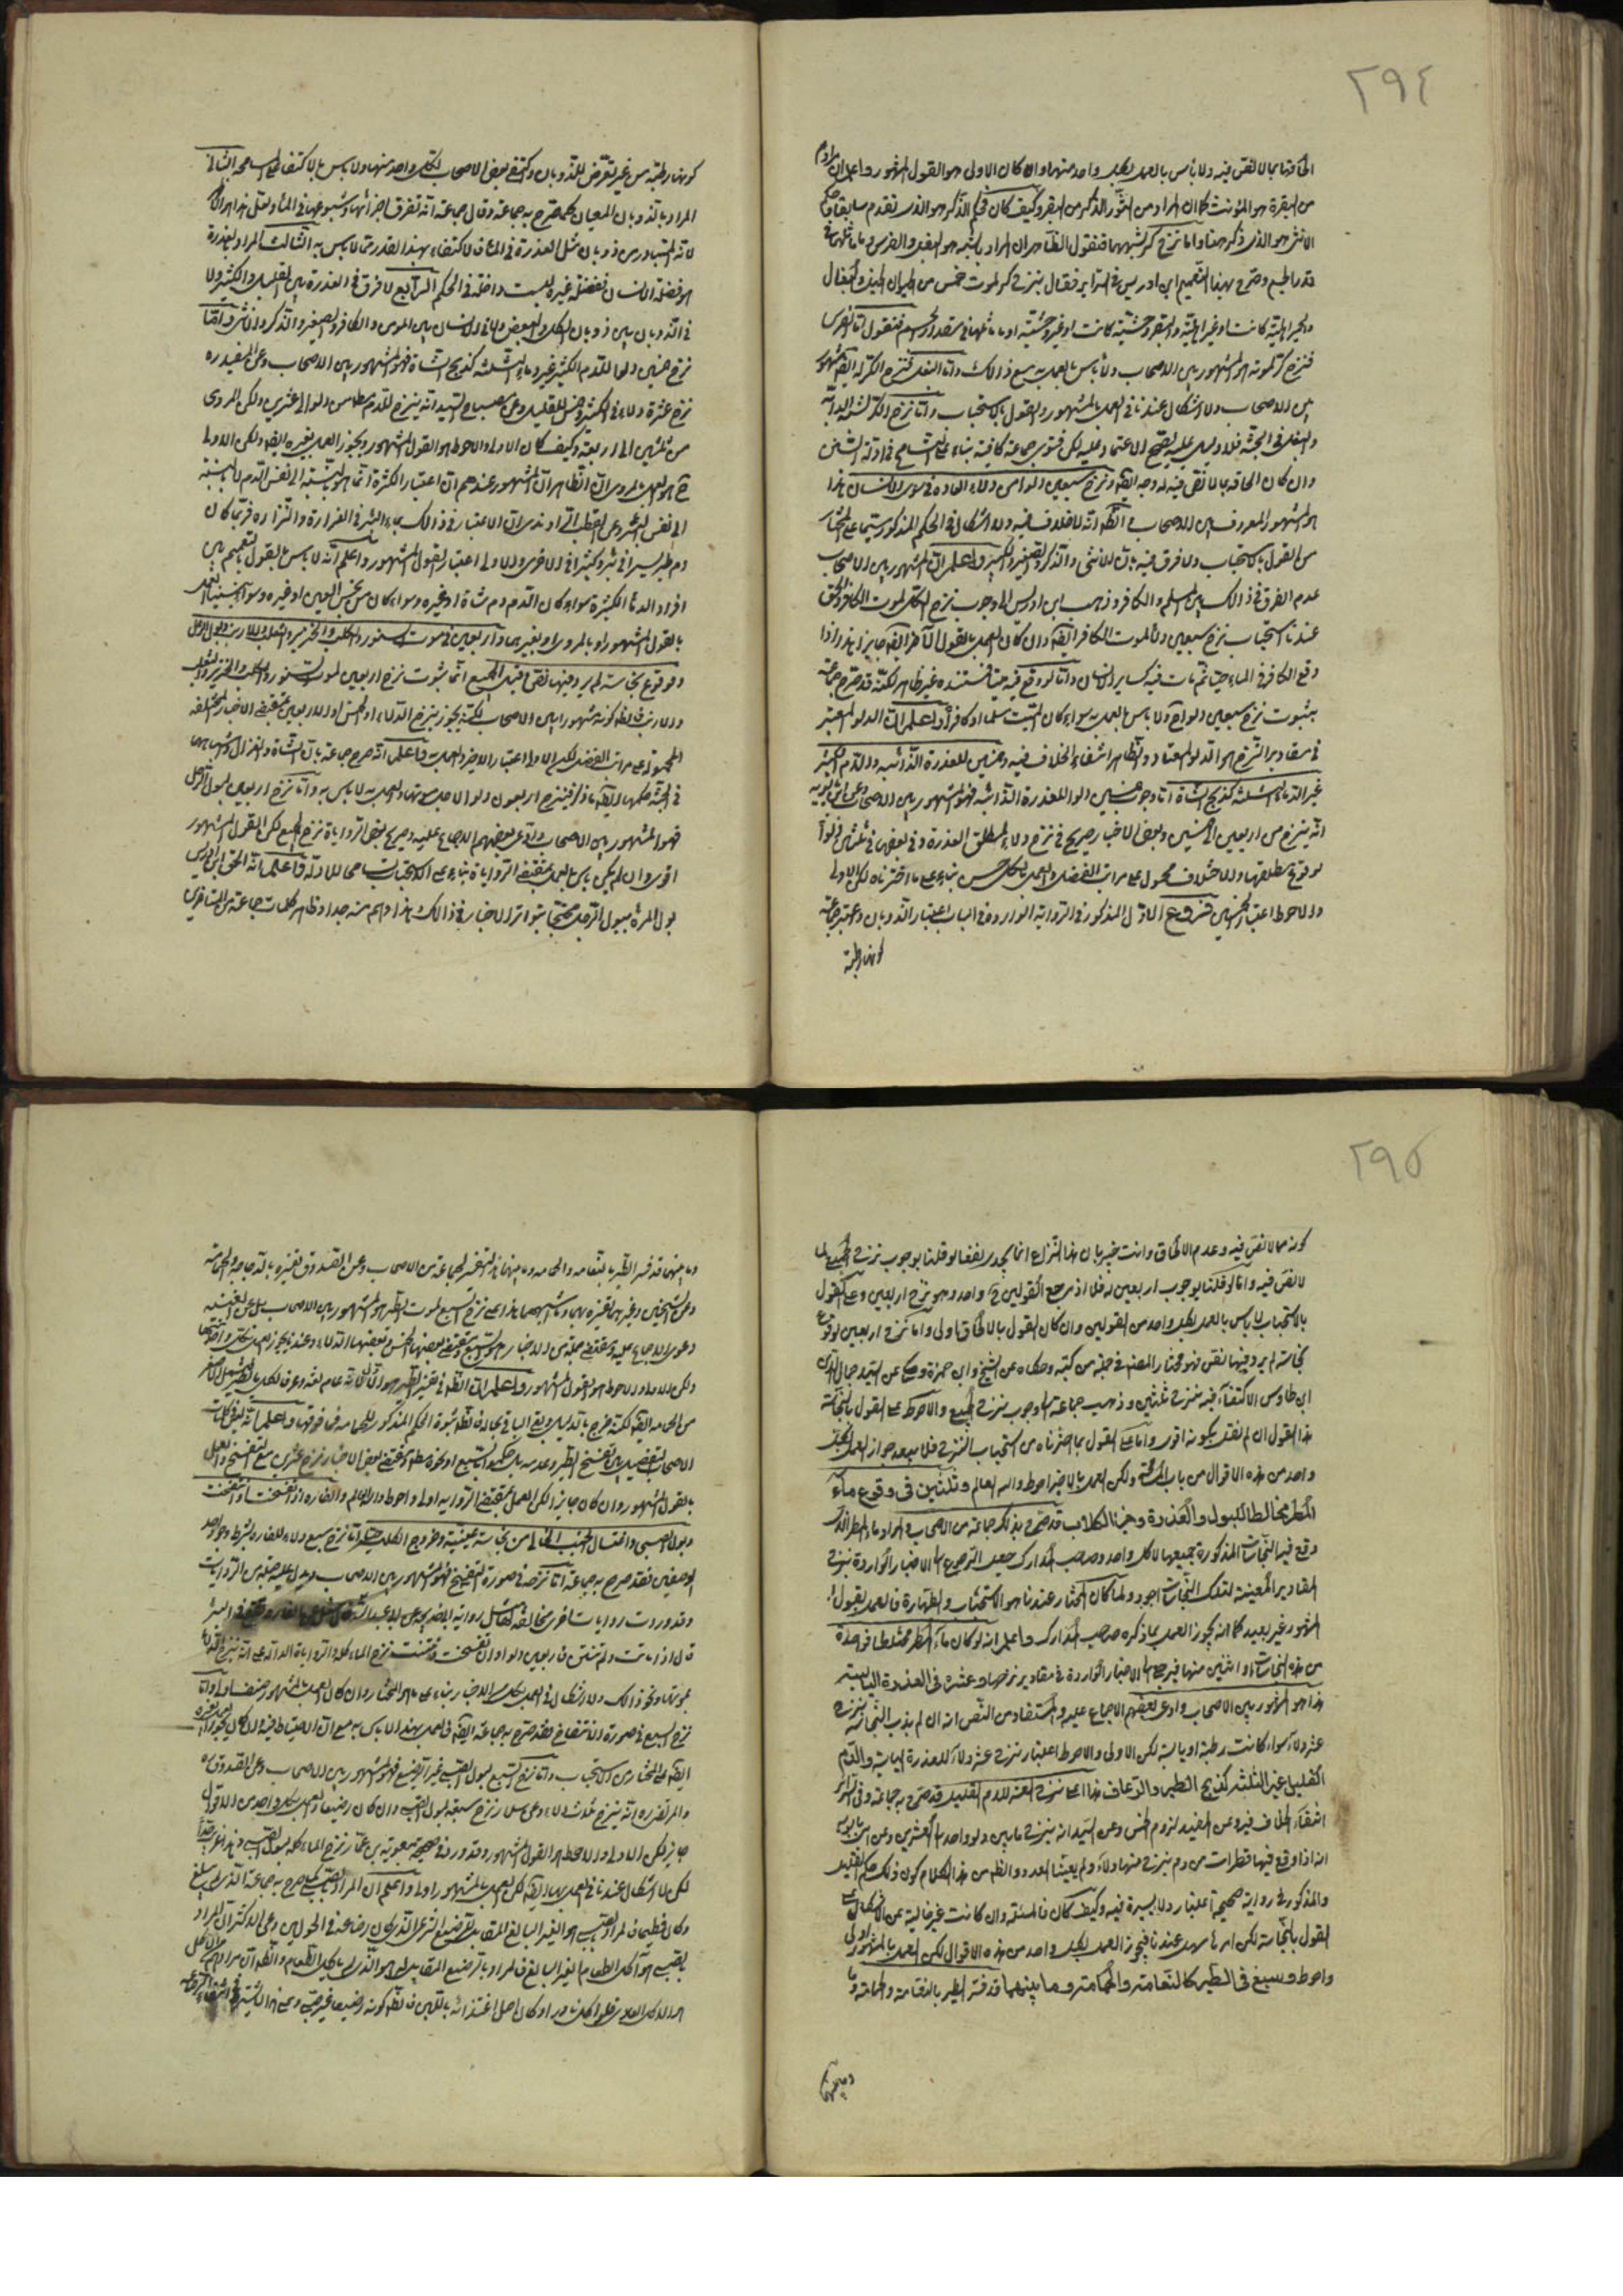 ٢٩٤
الحاقها بما لا نص فيه ولا بأس بالعمل بكل واحد منهما وان كان الاولى هو القول المشهور واعلم ان مرادهم
من البقرة هو المؤنث كما ان المراد من الثور الذكر من البقر وكيف كان فحكم الذكر هو الذي تقدم سابقا وحكم
الانثى هو الذي ذكر هنا واما نزح كر لشبههما فنقول الظاهر ان المراد بالشبه هو البغل والفرس وما ماثلهما في
قدر الجسم وصرح بهذا التعميم ابن ادريس في السرائر فقال ينزح كر لموت خمس من الحيوان الخيل والبغال
والحمير اهلية كانت او غير اهلية والبقر وحشية كانت او غير وحشية او ما ماثلها في مقدار الجسم فنقول اما الفرس
فنزح كر لموته هو المشهور بين الاصحاب ولا بأس بالعمل به مع ذلك واما البغل فنزح الكر له ايضا مشهور
بين الاصحاب ولا اشكال عندنا في العمل بالمشهور والقول بالاستحباب واما نزح الكر لشبه الدابة
والبغل في الجثة فلا دليل عليه يصح الاعتماد عليه لكن فتوى جماعة كافية بناء على التسامح في ادلة السنن
وان كان الحاقه بما لا نص فيه له وجه ايضا ونزح سبعين دلوا من دلاء العادة في موت الانسان هذا
هو المشهور المعروف بين الاصحاب بل الظ انه لا خلاف فيه ولا اشكال في الحكم المذكور سيما على المختار
من القول بالاستحباب ولا فرق فيه بين الانثى والذكر والصغير والكبير واعلم ان المشهور بين الاصحاب
عدم الفرق في ذلك بين المسلم والكافر وذهب ابن ادريس الى وجوب نزح الكل لموت الكافر والحق
عندنا استحباب نزح سبعين دلوا لموت الكافر ايضا وان كان العمل بالقول الآخر ايضا جايز هذا اذا
وقع الكافر في الماء حيا ثم مات فيه كساير الانسان واما لو وقع فيه ميتا فمستنده غير ظاهر لكنه قد صرح جماعة
بثبوت نزح سبعين دلوا ح ولا بأس بالعمل به سواء كان الميت مسلما او كافرا واعلم ان الدلو المعتبر
في مقادير النزح هو الدلو المعتاد والظاهر انتفاء الخلاف فيه وخمسين للعذرة الذائبة والدم الكثير
غير الدماء الثلثة كذبح الشاة اما وجوب خمسين دلوا للعذرة الذائبة فهو المشهور بين الاصحاب وعن ابن بابويه
انه ينزح من اربعين الى خمسين وبعض الاخبار صريح في نزح دلاء لمطلق العذرة وفي بعضها في ثلثين دلوا
لوقوع مطلقها والاختلاف محمول على مراتب الفضل والعمل بالكل حسن بناء على ما اخترناه لكن الاولى
والاحوط اعتبار الخمسين فروع الاول المذكور في الرواية الواردة في الباب اعتبار الذوبان واعتبر جماعة
كونها رطبة
كونها رطبة من غير تعرض للذوبان واكتفى بعض الاصحاب بكل واحد منهما ولا بأس بالاكتفاء للمسامحة الثاني
المراد بالذوبان الميعان كما صرح به جماعة وقال جماعة انه تفرق اجزائها وشيوعها في الماء ولعل هذا هو الاول
لانه المتبادر من ذوبان مثل العذرة في الماء فالاكتفاء بهذا القدر مما لا بأس به الثالث المراد بالعذرة
هو فضلة الانسان ففضلة غيره ليست داخلة في الحكم الرابع لا فرق في العذرة بين القليل والكثير ولا
في الذوبان بين ذوبان الكل والبعض ولا في الانسان بين المؤمن والكافر والصغير والذكر والانثى واما
نزح خمسين دلوا للدم الكثير غير دماء الثلثة كذبح الشاة فهو المشهور بين الاصحاب وعن المفيد ره
نزح عشرة دلاء في الكثير وخمس للقليل وعن مصباح السيد انه ينزح للدم مطلقا من دلو الى عشرين ولكن المروي
من ثلثين الى اربعين وكيف كان الاولى والاحوط هو القول المشهور ويجوز العمل بغيره ايضا ولكن الاولى
ح هو العمل بالمروي ثم ان الظاهر ان المشهور عندهم ان اعتبار الكثرة انما هو بالنسبة الى نفس الدم لا بالنسبة
الى نفس البئر وعن القطب الراوندي ان الاعتبار في ذلك بماء البئر في الغزارة والنزارة فربما كان
دم طير يسيرا في بئر وكثيرا في الاخرى والاولى اعتبار القول المشهور واعلم انه لا بأس بالقول بتعميم بين
افراد الدماء الكثيرة سواء كان الدم دم شاة او غيره وسواء كان من نجس العين او غيره
بالقول المشهور او بالمروي او بغيرهما واربعين في موت السنور والكلب والخنزير والثعلب والارنب وبول الرجل
ووقوع نجاسة لم يرد فيها نص وقيل الجميع اما ثبوت نزح اربعين لموت السنور والكلب والخنزير والثعلب
والارنب فالظ كونه مشهورا بين الاصحاب لكنه يجوز نزح الدلاء او الخمس او الاربعين بمقتضى الاخبار المختلفة
المحمولة على مراتب الفضل لكن الاولى اعتبار الاخير والعمل به فاعلم انه صرح جماعة بان الشاة والغزال وشبههما
في الجثة حكمها ايضا ما ذكر فينزح اربعون دلوا لاجل موتها والعمل به لا بأس به واما نزح اربعين لبول الرجل
فهو المشهور بين الاصحاب وادعى بعضهم الاجماع عليه وصريح بعض الروايات نزح الجميع لكن القول المشهور
اقوى وان لم يكن بأس بالعمل بمقتضى الرواية بناء على الاستحباب تسامحا للادلة فاعلم انه الحق ابن ادريس
بول المرأة ببول الرجل محتجا بتواتر الاخبار في ذلك هذا وهم منه جدا وظاهر كلمات جماعة من المتأخرين
٢٩٥
كونه مما لا نص فيه وعدم الالحاق وانت خبير بان هذا النزاع انما يجدي نفعا لو قلنا بوجوب نزح الجميع لما
لا نص فيه واما لو قلنا بوجوب اربعين له فلا اذ مرجع القولين ح واحد وهو نزح اربعين وعلى القول
بالاستحباب لا بأس بالعمل بكل واحد من القولين وان كان القول بالالحاق اولى واما نزح اربعين لوقوع
نجاسة لم يرد فيها نص فهو مختار المصنف في جملة من كتبه وحكاه عن الشيخ وابن حمزة وحكى عن السيد جمال الدين
ابن طاوس الاكتفاء فيه بنزح ثلثين وذهب جماعة الى وجوب نزح الجميع والاحوط على القول بالنجاسة
هذا القول ان لم نقل بكونه اقوى واما على القول بما اخترناه من استحباب النزح فلا يبعد جواز العمل بكل
واحد من هذه الاقوال من باب السنة ولكن العمل بالاخير احوط والله العالم وثلثين في وقوع ماء
المطر مخالطا للبول والعذرة وخرء الكلاب قد صرح بذلك جماعة من الاصحاب والمراد ماء المطر الذي
وقع فيه النجاسات المذكورة جميعها لا كل واحد وصاحب المدارك جعل الرجوع الى الاخبار الواردة بنزح
المقادير المعينة لتلك النجاسات اجود ولما كان المختار عندنا هو الاستحباب والطهارة فالعمل بقول
المشهور غير بعيد كما انه يجوز العمل بما ذكره صاحب المدارك واعلم انه لو كان ماء المطر مختلطا بواحدة
من هذه النجاسات او اثنين منها فيرجع الى الاخبار الواردة في مقادير نزحها وعشرة في العذرة اليابسة
هذا هو المشهور بين الاصحاب وادعى بعضهم الاجماع عليه والمستفاد من النص انه ان لم يذب النجاسة ينزح
عشر دلاء سواء كانت رطبة او يابسة لكن الاولى والاحوط اعتبار نزح عشر دلاء للعذرة اليابسة والدم
القليل غير الثلثة كذبح الطير والرعاف هذا اعنى نزح العشرة للدم القليل قد صرح به جماعة وفي السرائر
انتفاء الخلاف فيه وعن المفيد لزوم الخمس وعن السيد انه ينزح ما بين دلو واحد الى العشرين وعن ابن بابويه
انه اذا وقع فيها قطرات من دم ينزح منها دلاء ولم يعينا العدد والظ من هذا الكلام كون ذلك حكم القليل
والمذكور في رواية صحيحة اعتبار دلاء يسيرة فيه وكيف كان فالمسئلة وان كانت غير خالية عن الاشكال على
القول بالنجاسة لكن الامر سهل عندنا فيجوز العمل بكل واحد من هذه الاقوال لكن العمل بالمشهور اولى
واحوط وسبع في الطير كالنعامة والحمامة وما بينهما قد فسر الطير بالنعامة والحمامة وما
وما بينهما
وما بينهما قد فسر الطير بالنعامة والحمامة وما بينهما هذا التفسير لجماعة من الاصحاب وعن الصدوق تفسيره بالدجاجة والحمامة
وعن الشيخين وغيرهما تفسيره بهما وما اشبههما هذا اعنى نزح السبع لموت الطير هو المشهور بين الاصحاب بل عن الغنية
دعوى الاجماع عليه ومقتضى جملة من الاخبار
ولكن الاولى والاحوط هو القول المشهور واعلم ان الظ في تفسير الطير هو
من الحمامة ايضا لكنه خرج بالدليل وبقي الباقي بحاله فالظ ثبوت الحكم المذكور للحمامة فما فوقها واعلم انه ليس في كلمات
الاصحاب تفصيل بين تفسخ الطير وعدمه
بالقول المشهور وان كان جايزا لكن العمل بمقتضى الرواية اولى واحوط والله العالم والفارة اذا تفسخت او انتفخت
وبول الصبي واغتسال الجنب الخالي من نجاسة عينية وخروج الكلب حيا اما نزح سبع دلاء للفارة بشرط وجود احد
الوصفين فقد صرح به جماعة اما نزحه في صورة التفسخ فهو المشهور بين الاصحاب ويدل عليه جملة من الروايات
وقد وردت روايات اخرى مخالفة
قال اذا ماتت ولم تنتن فاربعين دلوا وان تفسخت وانتنت نزح الماء كله والرواية الدالة على انه ينزح
بموتها ونحو ذلك ولا اشكال في العمل بتلك الاخبار بناء على ما هو المختار وان كان العمل بالمشهور
نزح السبع في صورة الانتفاخ فقد صرح به جماعة ايضا فالعمل بهذا لا بأس به
ايضا على المختار من الاستحباب واما نزح السبع لبول الصبي غير الرضيع فهو المشهور بين الاصحاب وعن الصدوق ره
والمرتضى ره انه ينزح ثلاث دلاء
جايز لكن الاولى والاحوط هو القول المشهور وقد ورد في صحيحة معوية بن عمار نزح الماء كله لبول الصبي وهذا غريب جدا
لكن لا اشكال عندنا في العمل بها ايضا لكن العمل بالمشهور اولى واعلم ان المراد بالصبي كما صرح به جماعة الذي لم يبلغ
وكان فطيما فالمراد بالصبي هو الغير البالغ المقابل للرضيع الشرعي الذي يكون رضاعه في الحولين وعن الاكثر ان المراد
بالصبي هو آكل الطعام الغير البالغ فالمراد بالرضيع المقابل له هو الذي لم يأكل الطعام